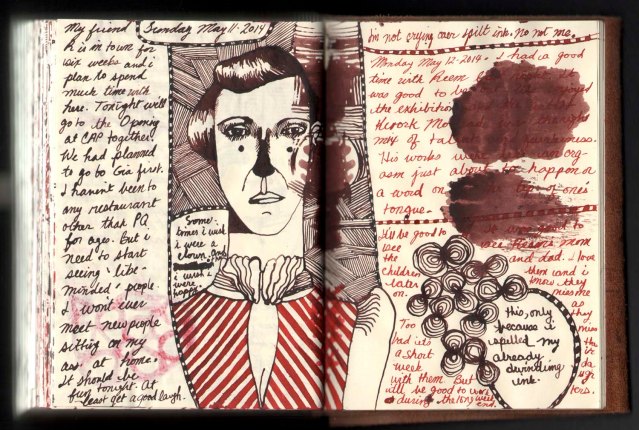 My friend
R is in town for
six weeks and i
plan to spend
much time with
here. Tonight will
go to the Opening
at CAP together.
We had planned
to go to Gia first.
I havent been to
any restaurant
other than PQ
for ages. But i
need to start
seeing 'like-
minded' people.
I won't ever
meet new people
sitting on my
ass at home.
It should be
fun tonight. At
least get a good laugh.
Sunday May 11-2014
Some-
times i wish
i were a
clown. And
i wish i
were
happy.
i'm not crying over spilt ink. No not me.
Monday May 12-2014. I had a good
time with Reem
was good to be enjoyed
the exhibition
mix of
His works were org-
asm just about to happen or
a word on the tip of one's
tongue.
It'll be good to
see
the
children
later
on.
Too
bad it's
a short
week
with them. But
will be good to work
during the long week
end.
see mom
and dad. I love
them and i
know they
miss me
as
they
miss
their
daugh
ters.
this, only
because i
spilled my
already
dwindling
ink.